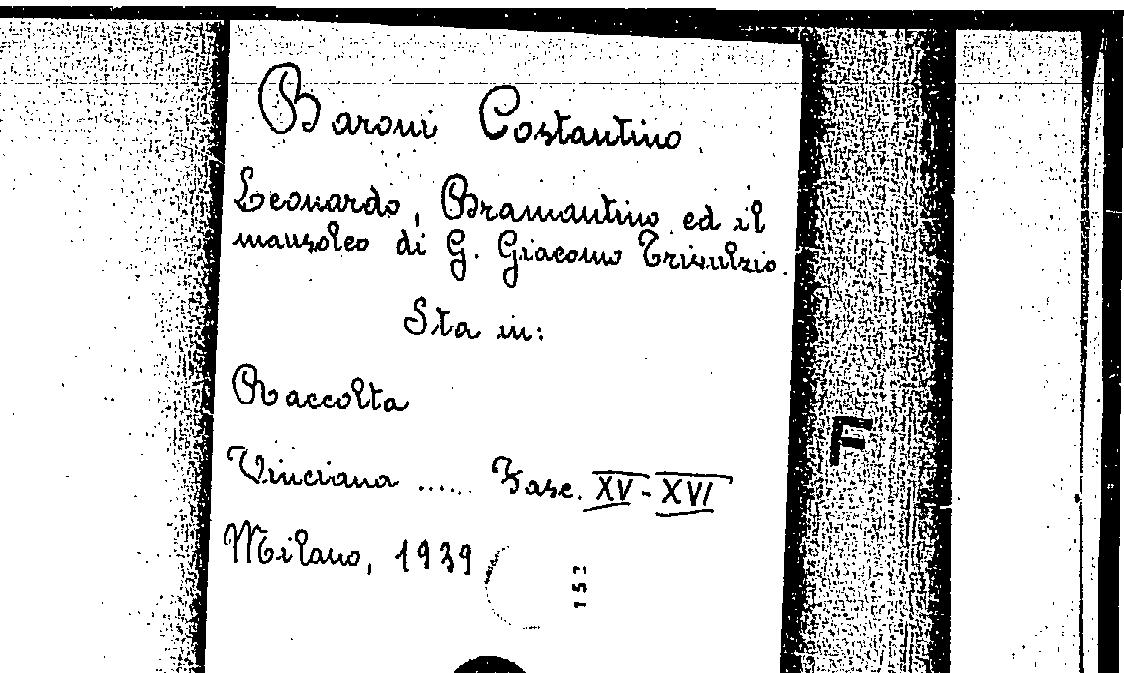 Baroni Costantino
Leonardo, Bramantino ed il
mausoleo di G. Giacomo Trivulzio.
Sta in:
Raccolta
Vinciana ..... Fasc. XV - XVI
Milano, 1939
F